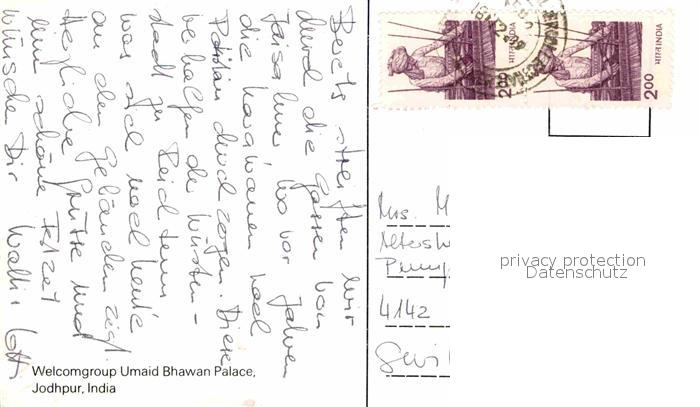 Bereits streiften wir
durch die Gassen von
Jaisalmer wo vor Jahren
die Karawanen nach
Pakistan durchzogen. Diese
verhalfen der Wüsten-
stadt zu Reichtum
was sich noch heute
an den Gebäuden zeigt.
Herzliche Grüsse und
eine schöne Festzeit
wünschen Dir Walti +
Welcomgroup Umaid Bhawan Palace,
Jodhpur, India
भारत INDIA
2.00
भारत INDIA
2.00
Mrs. M
Altersh
Pump
4142
privacy protection
Datenschutz